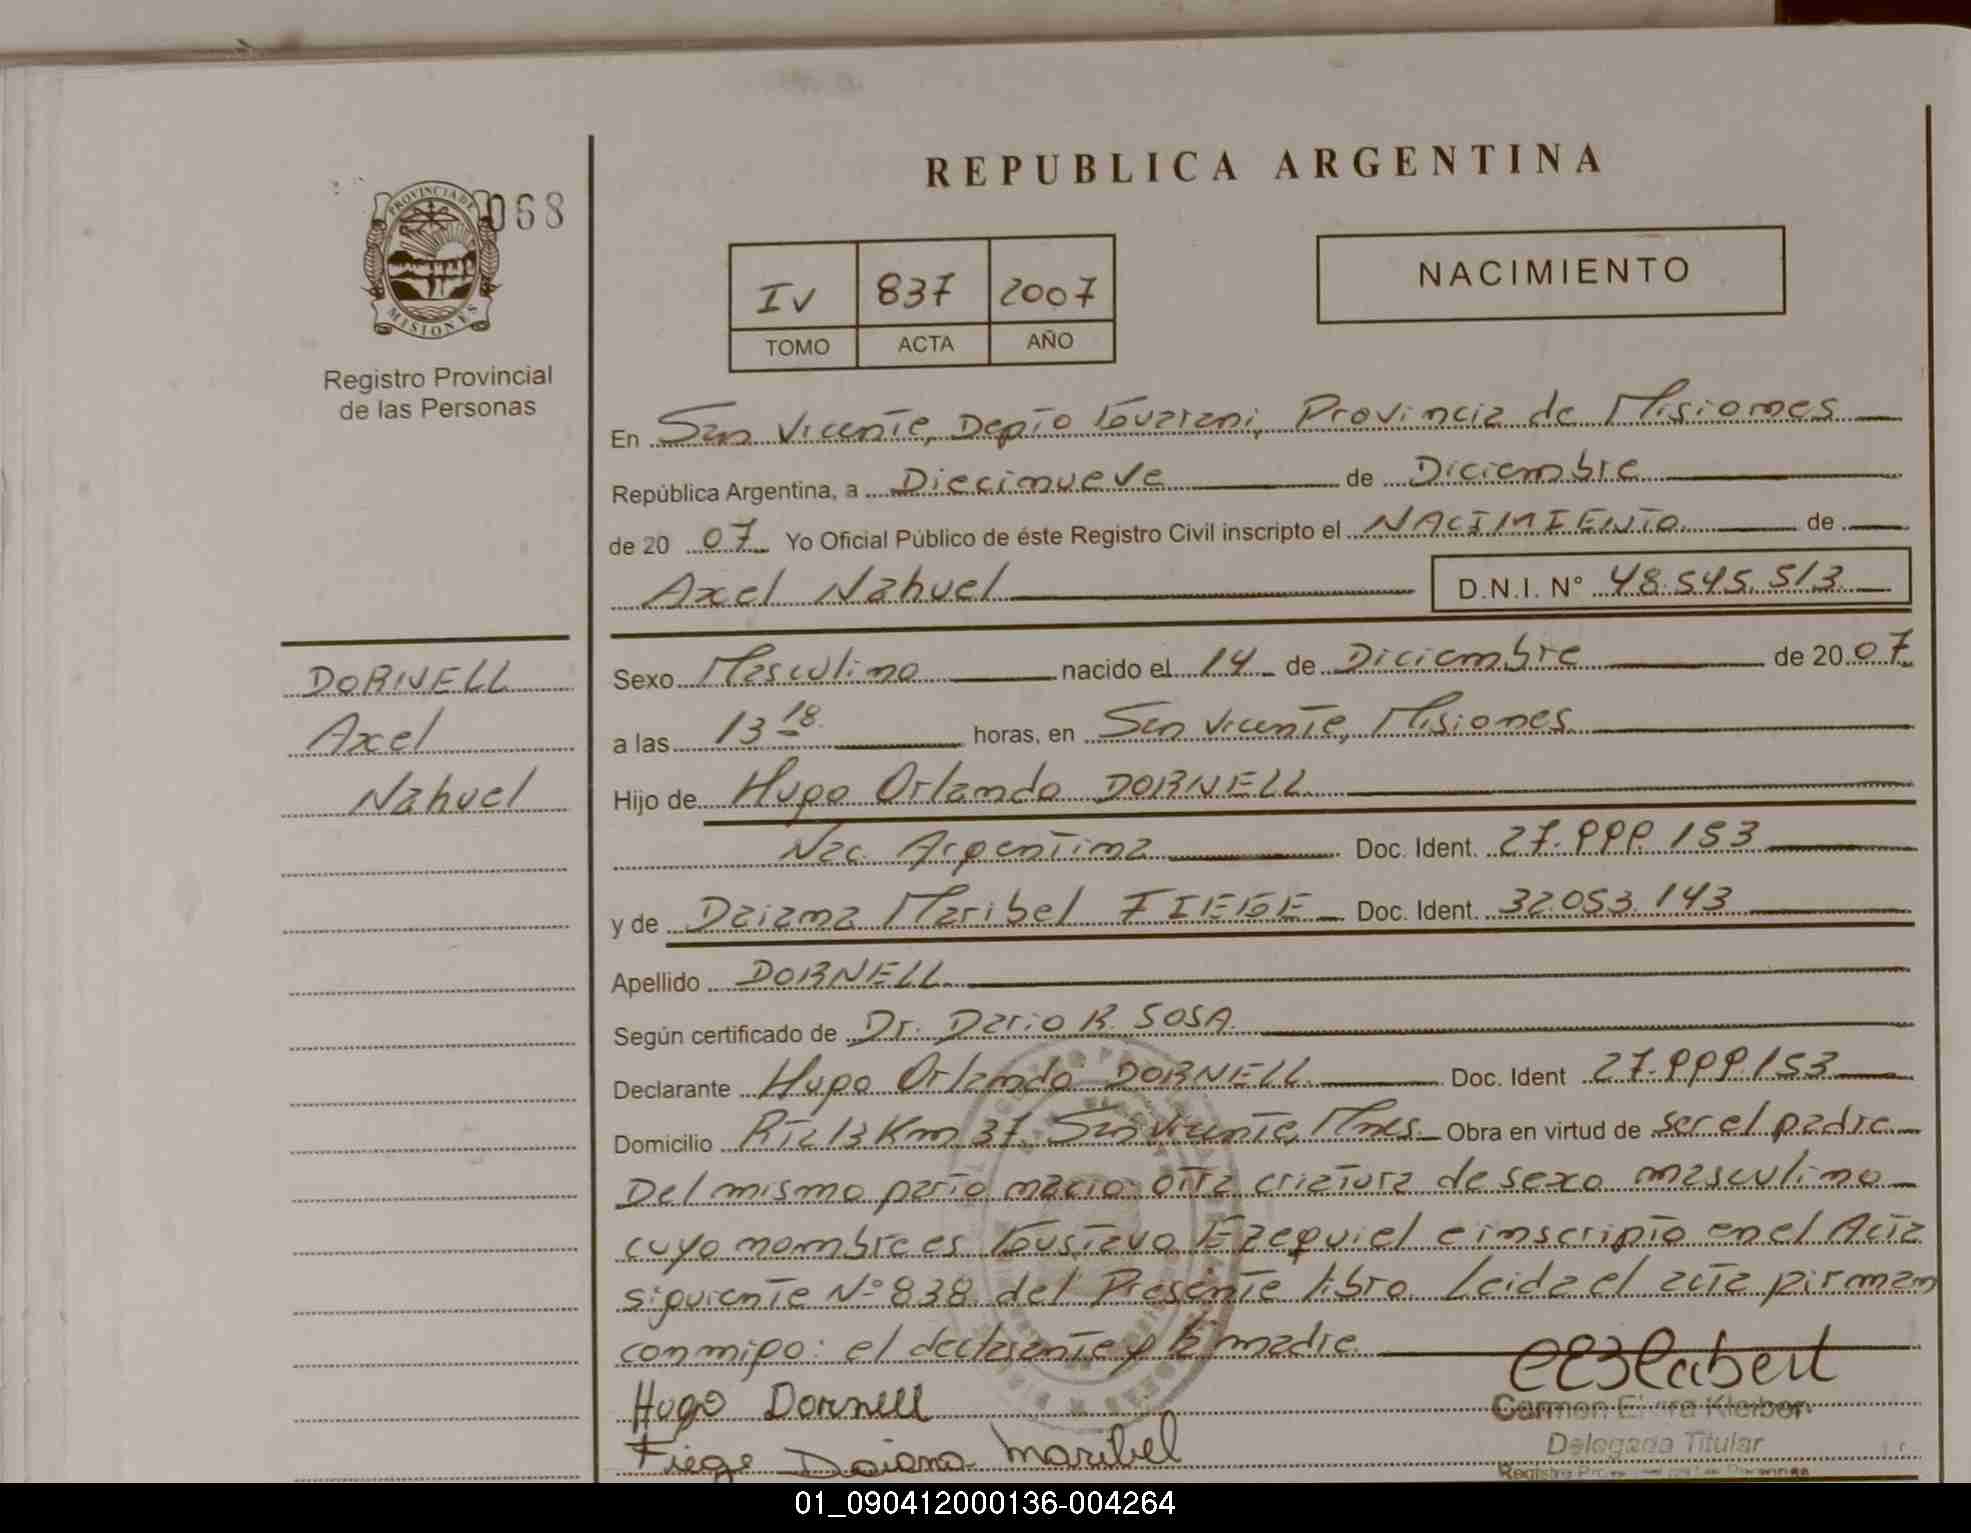 REPUBLICA ARGENTINA
068
PROVINCIA DE
MISIONES
Registro Provincial
de las Personas
IV 837 2007
TOMO ACTA AÑO
NACIMIENTO
En San Vicente, Depto Guarani, Provincia de Misiones
República Argentina, a Diecinueve de Diciembre
de 20 07 Yo Oficial Público de éste Registro Civil inscripto el NACIMIENTO de
Axel Nahuel D.N.I. N° 48.545.513
DORNELL
Axel
Nahuel
Sexo Masculino nacido el 14 de Diciembre de 20 07
a las 13 18 horas, en San Vicente, Misiones
Hijo de Hugo Orlando DORNELL
Nac. Argentina Doc. Ident. 27.999.153
y de Daiana Maribel FIEGE Doc. Ident. 32.053.143
Apellido DORNELL
Según certificado de Dr. Dario R. SOSA
Declarante Hugo Orlando DORNELL Doc. Ident 27.999.153
Domicilio Rta 13 Km 37 San Vicente, Mnes. Obra en virtud de ser el padre
Del mismo parto nacio otra criatura de sexo masculino
cuyo nombre es Gustavo Ezequiel e inscripto en el Acta
siguiente N° 838 del Presente libro. Leida el acta firman
conmigo: el declarante y la madre.
Hugo Dornell
Fiege Daiana Maribel
Carmen Kleiber
Delegada Titular
01_090412000136-004264